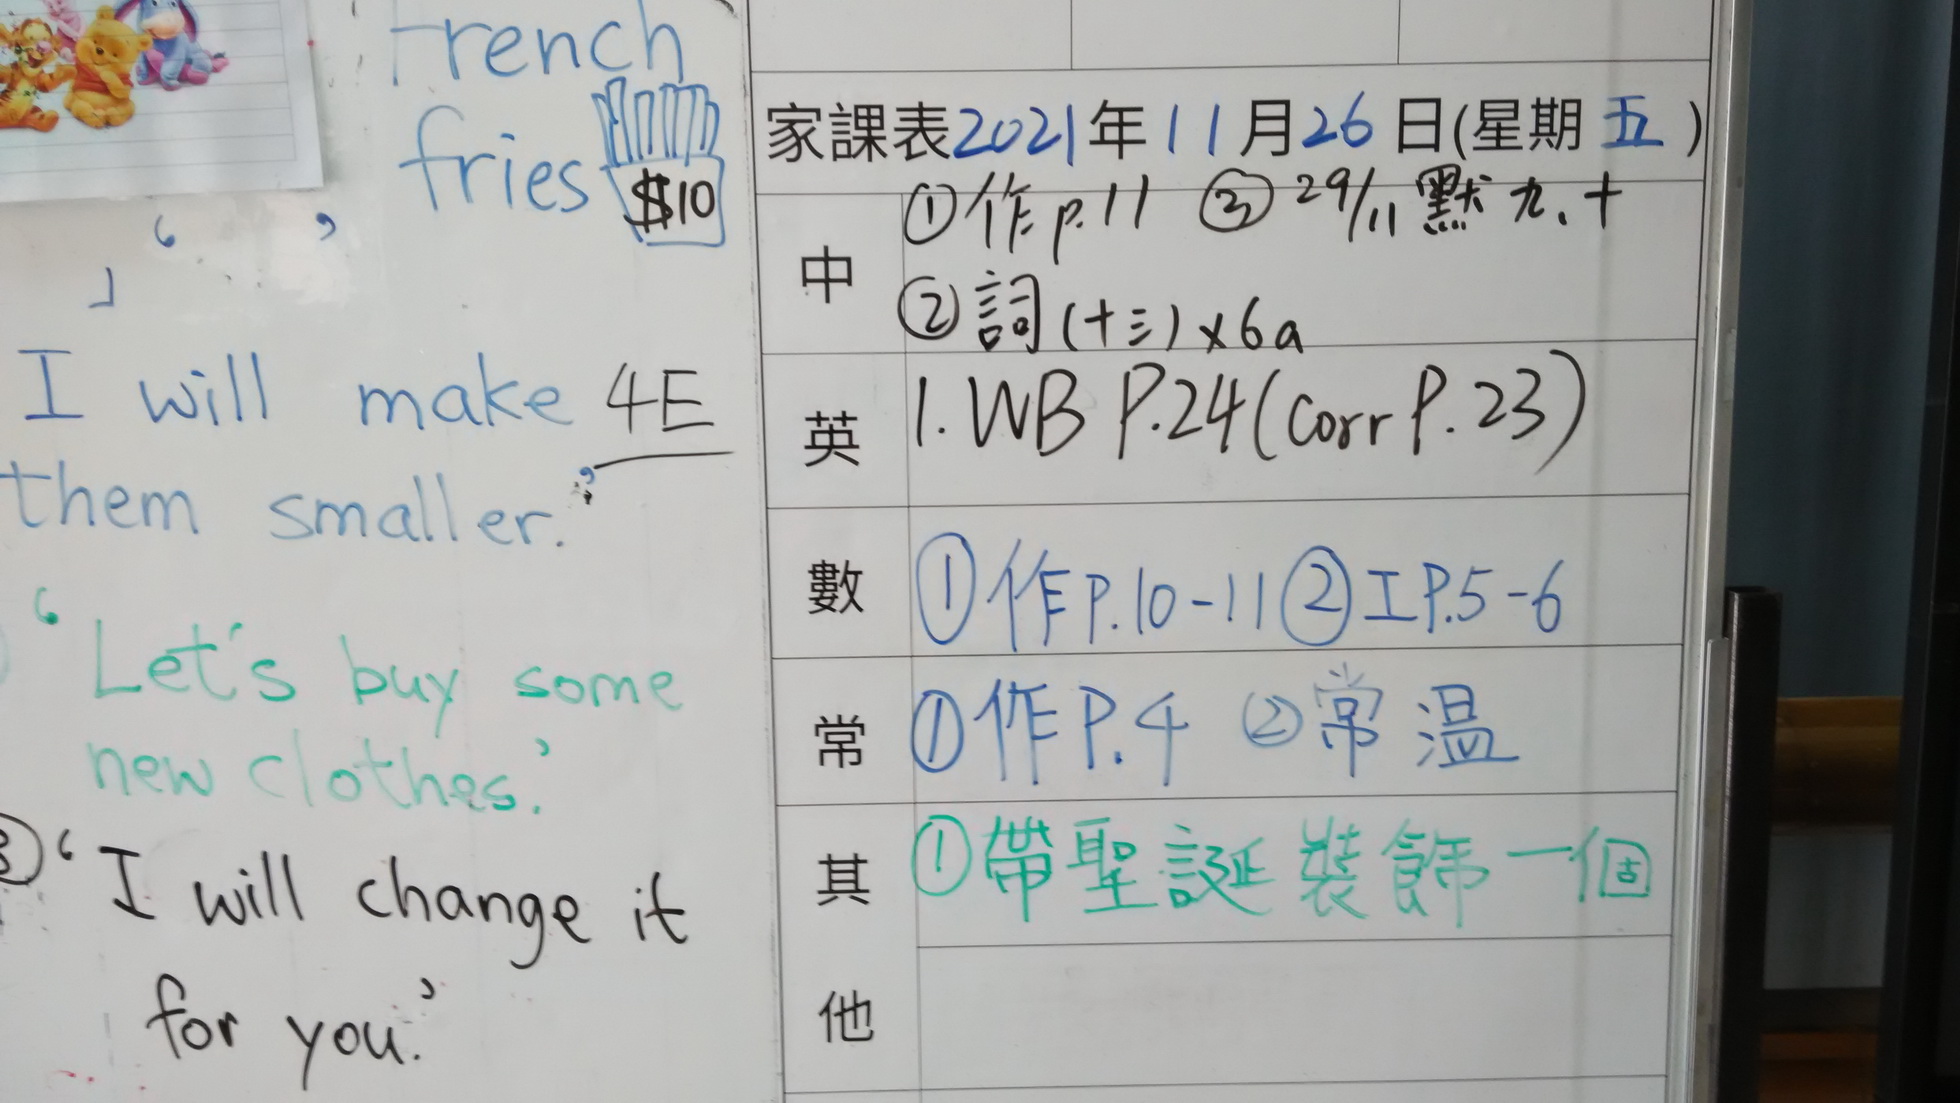 French
fries
$10
‘ ’
」
I will make
4E
them smaller.’
‘Let's buy some
new clothes.’
③ ‘I will change it
for you.’
家課表2021年11月26日(星期五)
中
①作p.11 ③29/11默九、十
②詞(十三)x6a
英
1. WB P.24(Corr P.23)
數
①作P.10-11②工P.5-6
常
①作P.4 ②常溫
其他
①帶聖誕裝飾一個